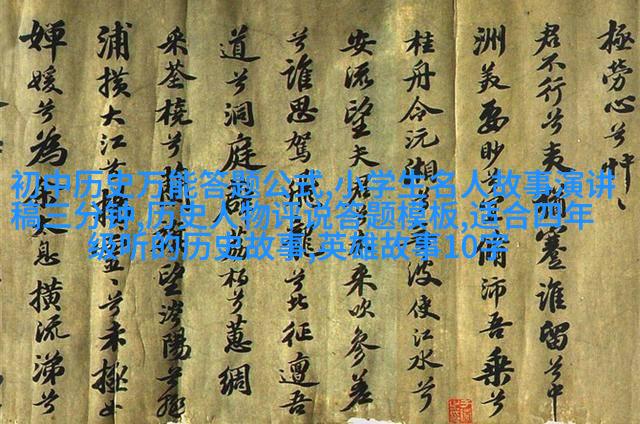 初中历史万能答题公式,小学生名人故事演讲
稿三分钟,历史人物评说答题模板,适合四年
级听的历史故事,英雄故事10字
極勞心兮
君不行兮夷猶蹇誰留兮中
洲美要眇兮宜沛吾乘兮
桂舟令沅湘兮波使江水兮
安流望夫君兮來吹參差
兮誰思駕飛龍兮北征邅吾
道兮洞庭薜荔兮蕙綢
采荃橈兮蘭望涔陽兮
浦橫大江兮揚兮未極女
嬋媛兮為余息橫流涕兮